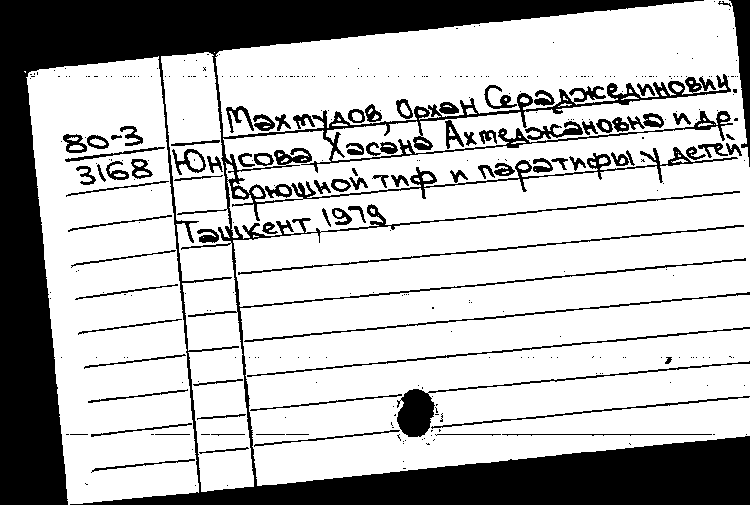 80-3
3168
Махмудов, Орхан Сераджединович.
Юнусова, Хасана Ахмеджановна и др.
Брюшной тиф и паратифы у детей.
Ташкент, 1979.